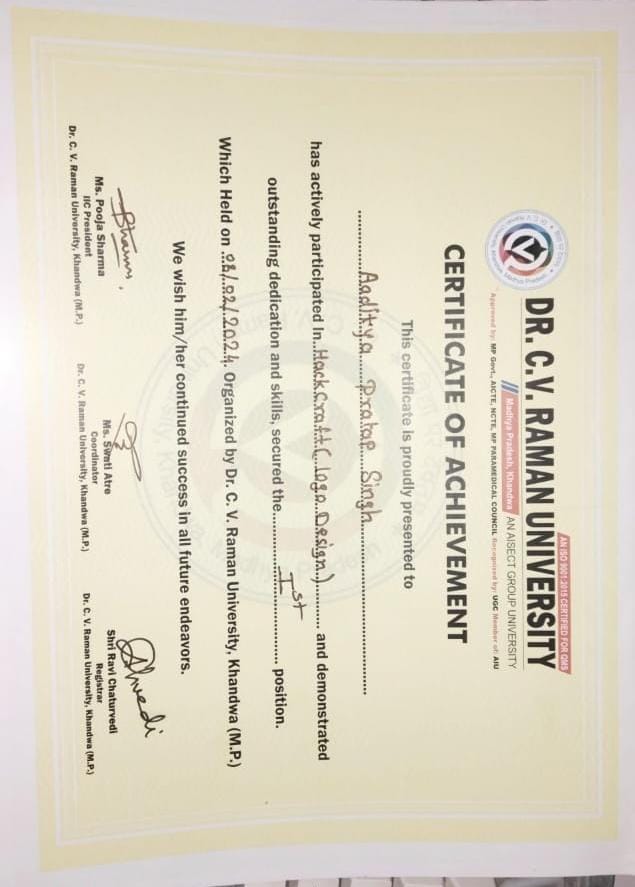 AN ISO 9001:2015 CERTIFIED FOR QMS
DR. C.V. RAMAN UNIVERSITY
Madhya Pradesh, Khandwa AN AISECT GROUP UNIVERSITY
Approved by: MP Govt., AICTE, NCTE, MP PARAMEDICAL COUNCIL Recognised by: UGC Member of: AIU
CERTIFICATE OF ACHIEVEMENT
This certificate is proudly presented to
Aaditya Pratap Singh
has actively participated In..HackCraft (Logo Design)........... and demonstrated
outstanding dedication and skills, secured the..............Ist.............. position.
Which Held on 08/02/2024. Organized by Dr. C. V. Raman University, Khandwa (M.P.)
We wish him/her continued success in all future endeavors.
Ms. Pooja Sharma
IIC President
Dr. C. V. Raman University, Khandwa (M.P.)
Ms. Swati Atre
Coordinator
Dr. C. V. Raman University, Khandwa (M.P.)
Shri Ravi Chaturvedi
Registrar
Dr. C. V. Raman University, Khandwa (M.P.)